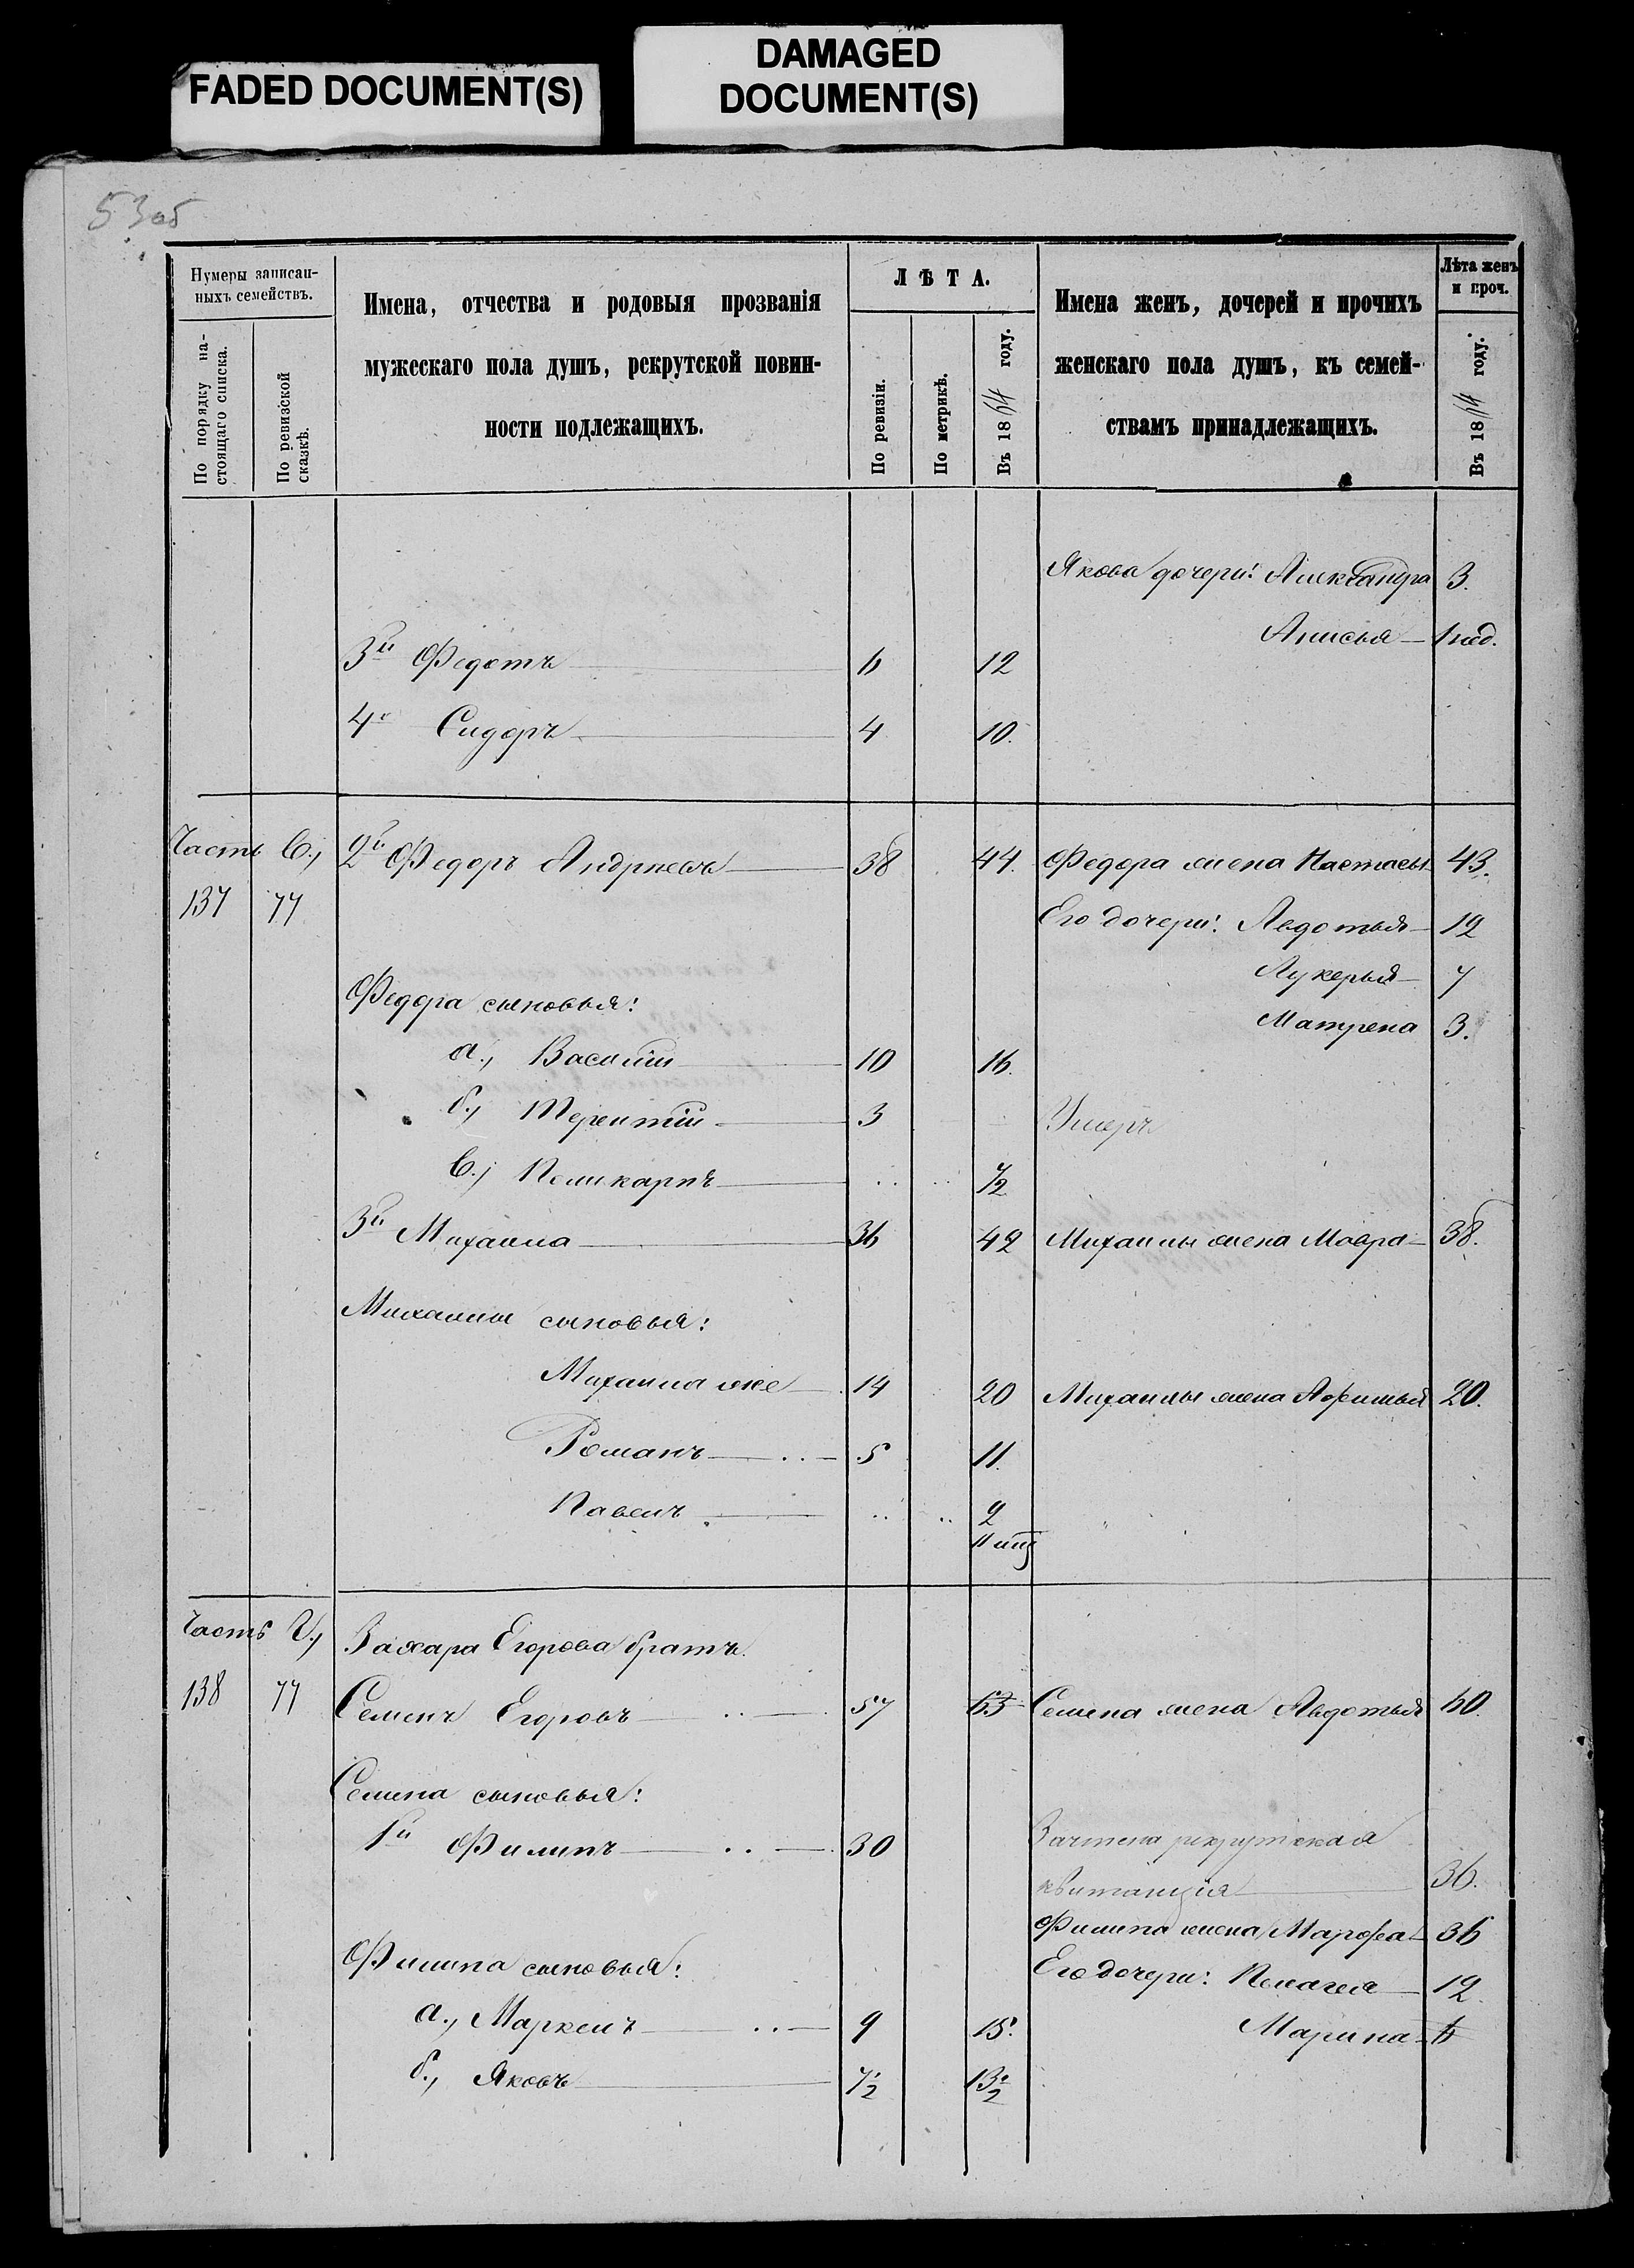 FADED DOCUMENT(S)
DAMAGED
DOCUMENT(S)
53об
Нумеры записан-
ныхъ семействъ.
По порядку на-
стоящаго списка.
По ревизской
сказкѣ.
Имена, отчества и родовыя прозванія
мужескаго пола душъ, рекрутской повин-
ности подлежащихъ.
ЛѢТА.
По ревизіи.
По метрикѣ.
Въ 1864 году.
Имена женъ, дочерей и прочихъ
женскаго пола душъ, къ семей-
ствамъ принадлежащихъ.
Лѣта женъ
и проч.
Въ 1864 году.
Якова дочери: Александра 3.
Анисья — 1 нед.
3й Федотъ 6 12
4й Сидоръ 4 10.
Часть в., 2й Федоръ Андреевъ 38 44. Федора жена Настасья 43.
137 77 Его дочери: Авдотья 12
Лукерья 7
Федора сыновья: Матрена 3.
а., Василій 10 16.
б., Терентій 3 Умеръ
в., Поликарпъ ½
3й Михаила 36 42 Михаилы жена Мавра 38.
Михаилы сыновья:
Михаила же 14 20 Михаилы жена Афимья 20.
Романъ 5 11.
Павелъ 2
Часть г., Захара Егорова братъ.
138 77 Семенъ Егоровъ 57 63 Семена жена Авдотья 60.
Семена сыновья:
1й Филипъ 30 Зачтена рекрутская
квитанція 36.
Филипа жена Марфа 36
Филипа сыновья: Его дочери: Пелагея 12.
а., Маркелъ 9 15. Марина 6
б., Яковъ 7½ 13½